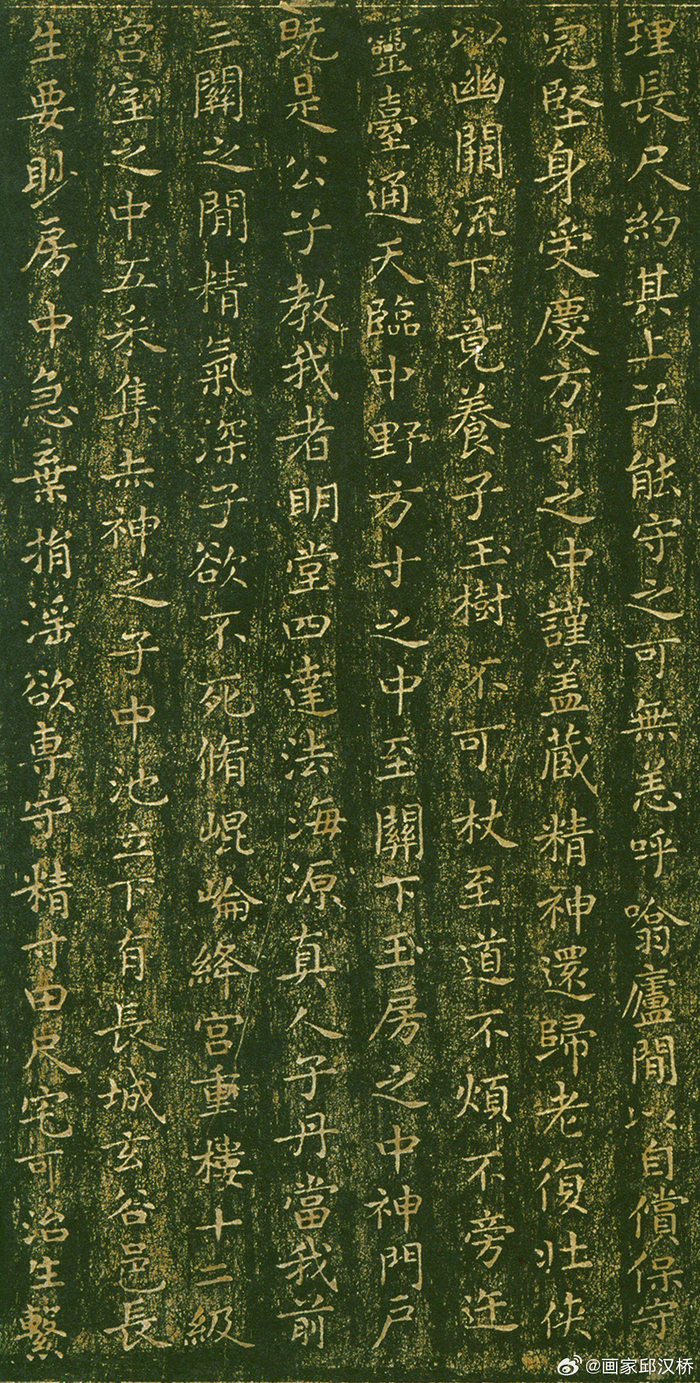 理長尺約其上子能守之可無恙呼噏廬間以自償保守
完堅身受慶方寸之中謹盖藏精神還歸老復壯俠
以幽關流下竟養子玉樹不可杖至道不煩不旁迕
靈臺通天臨中野方寸之中至關下玉房之中神門戶
既是公子教我者明堂四達法海源真人子丹當我前
三關之間精氣深子欲不死脩崐崘絳宮重樓十二級
宮室之中五采集赤神之子中池立下有長城玄谷邑長
生要眇房中急棄捐淫欲専守精寸田尺宅可治生繫
@画家邱汉桥